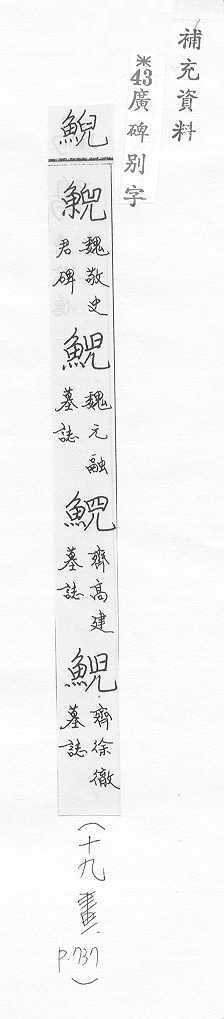 補充資料
※43廣碑別字
鯢
鯢 魏敬史君碑
鯢 魏元融墓誌
鯢 齊高建墓誌
鯢 齊徐徹墓誌
(十九畫、P.737)